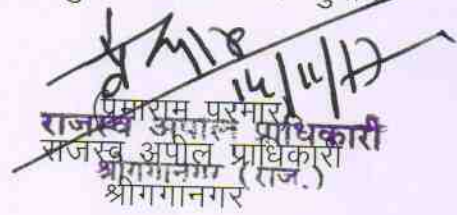 14/11/17
(प्रेमाराम परमार)
राजस्व अपील प्राधिकारी
राजस्व अपील प्राधिकारी
श्रीगंगानगर (राज.)
श्रीगंगानगर